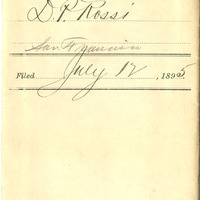 D. P. Rossi
San Francisco
Filed July 12, 1895